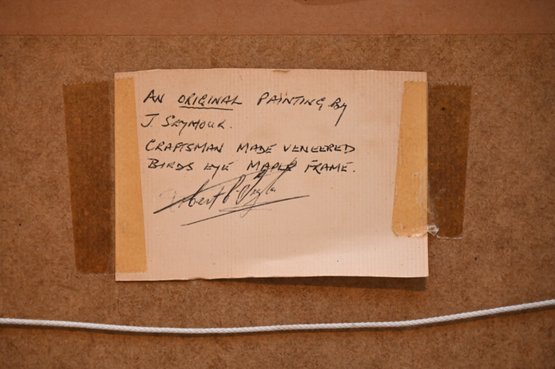 AN ORIGINAL PAINTING By
J SEYMOUR.
CRAFTSMAN MADE VENEERED
BIRDS EYE MAPLE FRAME.